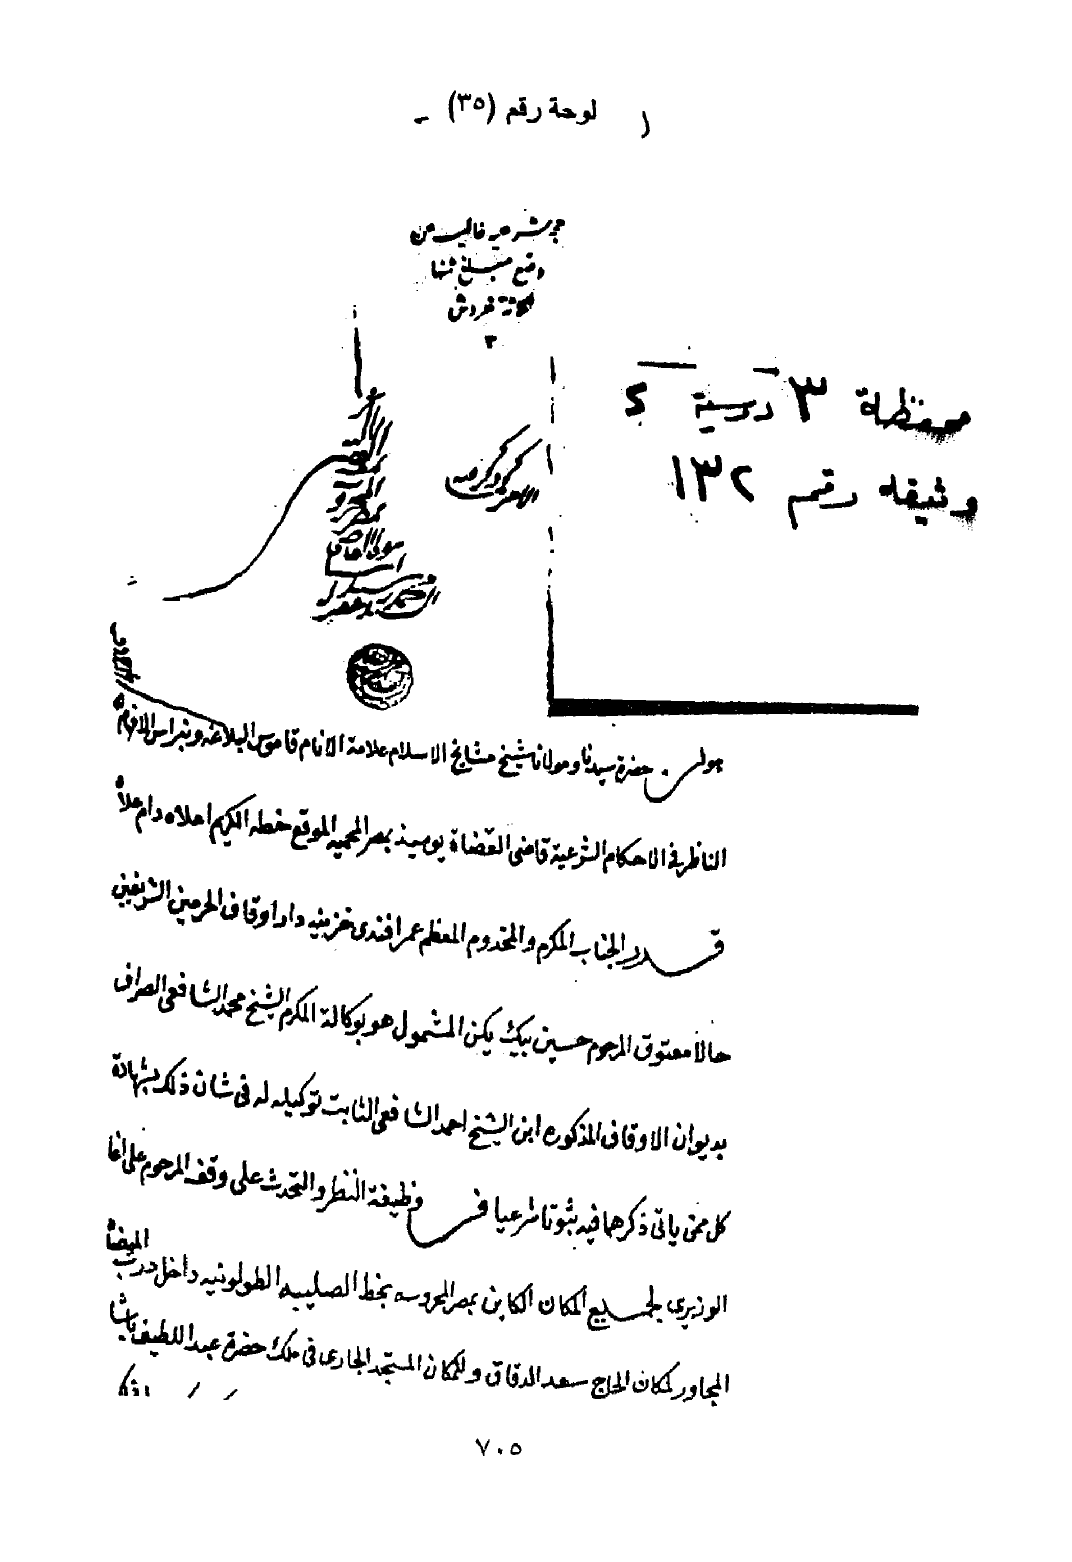 لوحة رقم (٣٥)
حجة شرعيه خاليه من
دفع مبلغ ثمنها
ثلاثة قروش
٣
محفظة ٣ درسية ٤
وثيقه رقم ١٣٢
حضرة سيدنا ومولانا شيخ مشايخ الاسلام علامة الانام قاموس البلاغه ونبراس الافهام
الناظر في الاحكام الشرعية قاضى القضاة يوميذ بمصر المحميه الموقع خطه الكريم اعلاه دام علاه
قرر الجناب المكرم والمخدوم المعظم عمر افندى خزينه دار اوقاف الحرمين الشريفين
حالا معتوق المرحوم حسين بيك يكن المشمول هو بوكالة المكرم الشيخ محمد الشافعى الصراف
بديوان الاوقاف المذكوره ابن الشيخ احمد الشافعى الثابت توكيله له فى شان ذلك بشهادة
كل ممن ياتى ذكرهما فيه ثبوتا شرعيا فى وظيفة النظر والتحدث على وقف المرحوم على اغا
الوزيرى لجميع المكان الكاين بمصر المحروسه بخط الصليبه الطولونيه داخل درب الميضاه
المجاور لمكان الحاج سعد الدقاق وللمكان المستجد الجارى فى ملك حضرة عبد اللطيف باشا
٧٠٥